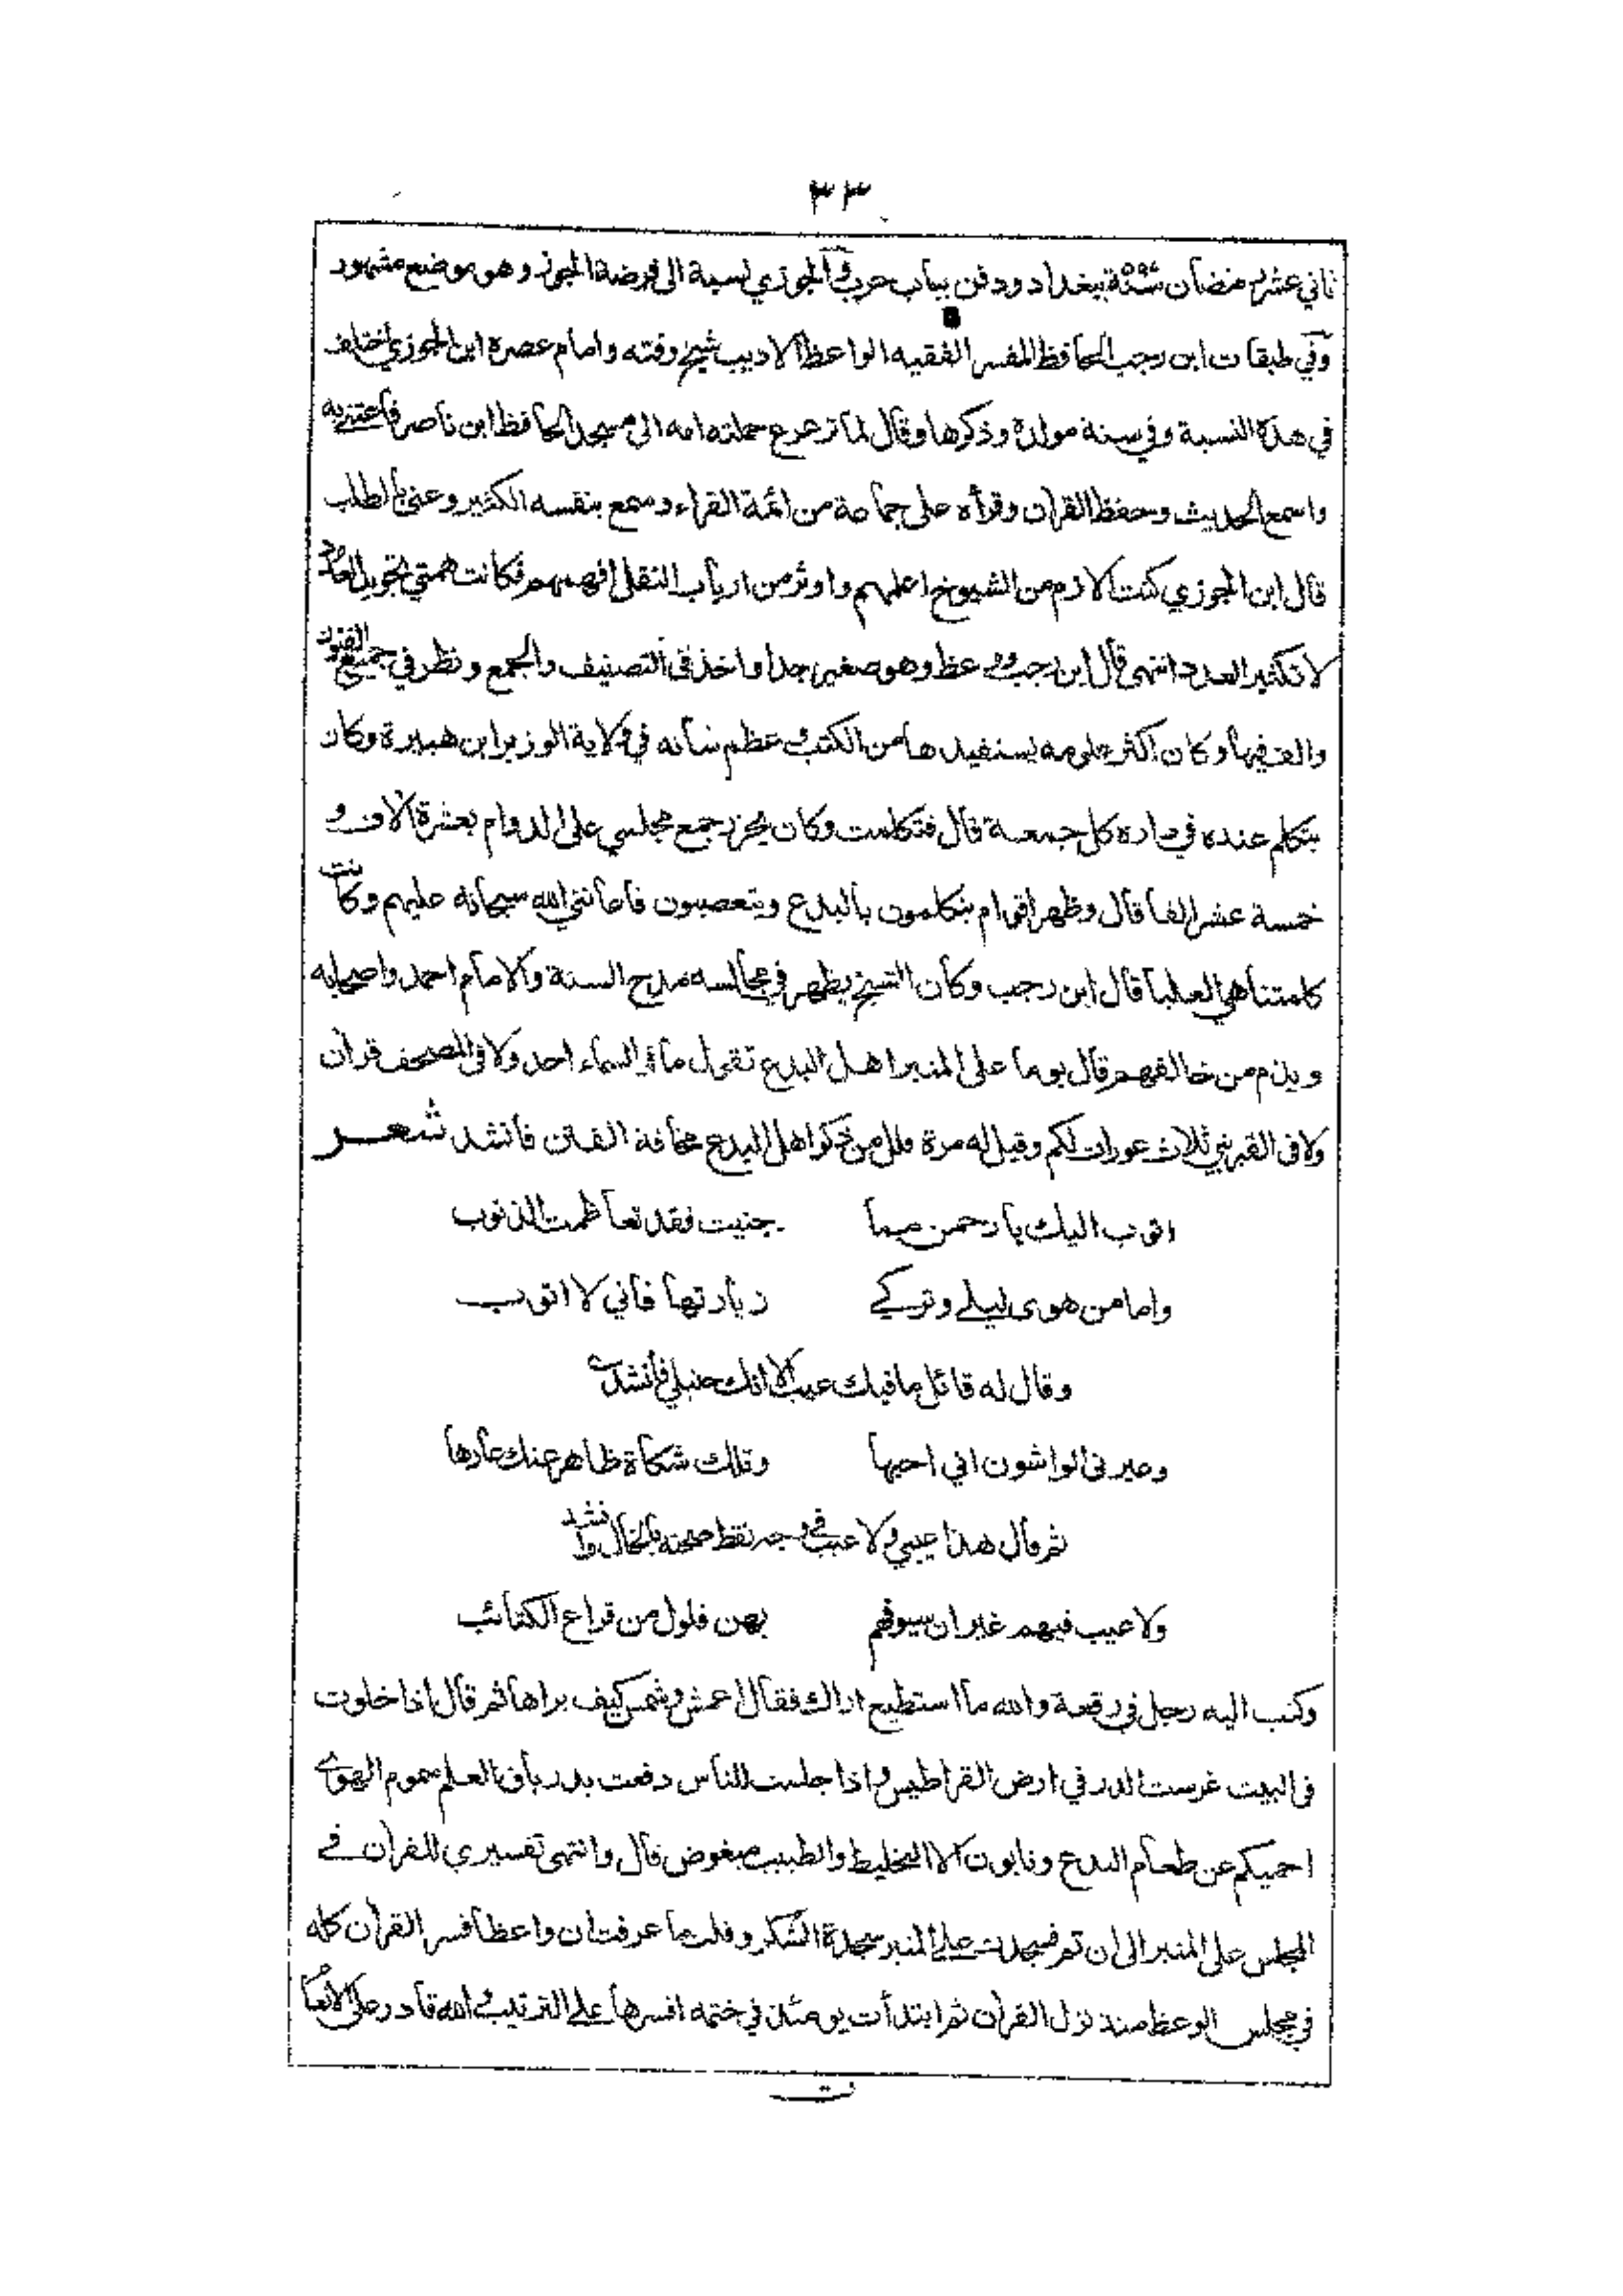 ٣٣
ثاني عشر رمضان سنة ٥٩٧ ببغداد ودفن بباب حرب والجوزي نسبة الى فرضة الجوز وهو موضع مشهور
وفي طبقات ابن رجب الحافظ المفسر الفقيه الواعظ الاديب شيخ وقته وامام عصره ابن الجوزي اختلف
في هذه النسبة وفي سنة مولده وذكرها وقال لما ترعرع حملته امه الى مسجد الحافظ ابن ناصر فاعتنى به
واسمع الحديث وحفظ القران وقرأه على جماعة من ائمة القراء وسمع بنفسه الكثير وعنى بالطلب
قال ابن الجوزي كنت الازم من الشيوخ اعلمهم واوثر من ارباب النقل افهمهم فكانت همتي تجويد العدد
لا تكثير العدد انتهى قال ابن رجب ووعظ وهو صغير جدا واخذ في التصنيف والجمع ونظر في جميع الفنون
والف فيها وكان اكثر علومه يستفيدها من الكتب وعظم شأنه في ولاية الوزير ابن هبيرة وكان
يتكلم عنده في داره كل جمعة قال فتكلمت وكان يحزر جمع مجلسي على الدوام بعشرة الاف و
خمسة عشر الفا قال وظهر اقوام يتكلمون بالبدع ويتعصبون فاعانني الله سبحانه عليهم وكانت
كلمتنا هي العليا قال ابن رجب وكان الشيخ يظهر في مجالسه مدح السنة والامام احمد واصحابه
ويذم من خالفهم قال يوما على المنبر اهل البدع تقول ما في السماء احد ولا في المصحف قران
ولا في القبر نبي ثلاث عورات لكم وقيل له مرة قلل من ذكر اهل البدع مخافة الفتن فانشد شعر
اتوب اليك يا رحمن مما جنيت فقد تعاظمت الذنوب
واما من هوى ليلى وتركي زيارتها فاني لا اتوب
وقال له قائل ما فيك عيب الا انك حنبلي فانشد
وعيرني الواشون اني احبها وتلك شكاة ظاهر عنك عارها
ثم قال هذا عيبي ولا عيب في وجه نقط صحنه بالخال وانشد
ولا عيب فيهم غير ان سيوفهم بهن فلول من قراع الكتائب
وكتب اليه رجل في رقعة والله ما استطيع اراك فقال اعمش وشمس كيف يراها ثم قال اذا خلوت
في البيت غرست الدر في ارض القراطيس واذا جلست للناس دفعت بدرياق العلم سموم الهوى
احميكم عن طعام البدع وتابون الا التخليط والطبيب مبغوض قال وانتهى تفسيري للقران في
المجلس على المنبر الى ان تم فسجدت على المنبر سجدة الشكر وقلت ما عرفت ان واعظا فسر القران كله
في مجلس الوعظ منذ نزل القران ثم ابتدأت يومئذ في ختمه افسرها على الترتيب والله قادر على الانعا
ت